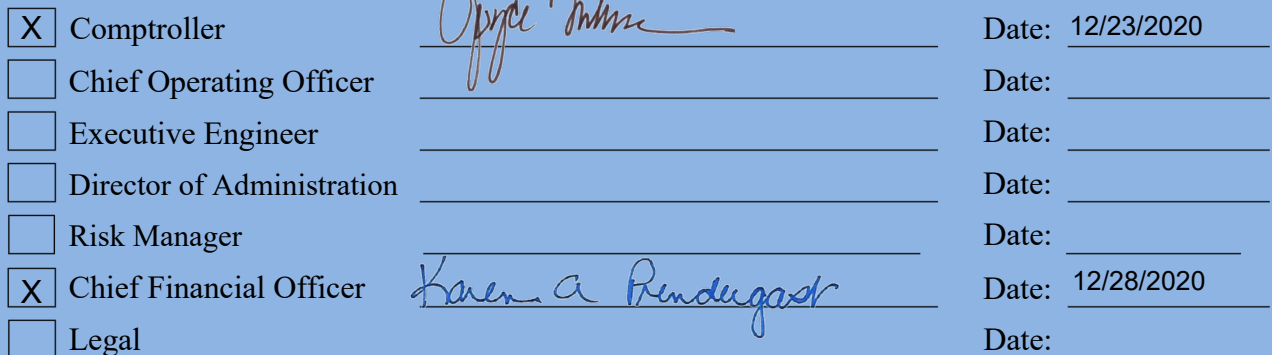 X Comptroller Date: 12/23/2020
Chief Operating Officer Date:
Executive Engineer Date:
Director of Administration Date:
Risk Manager Date:
X Chief Financial Officer Karen A Prendergast Date: 12/28/2020
Legal Date: